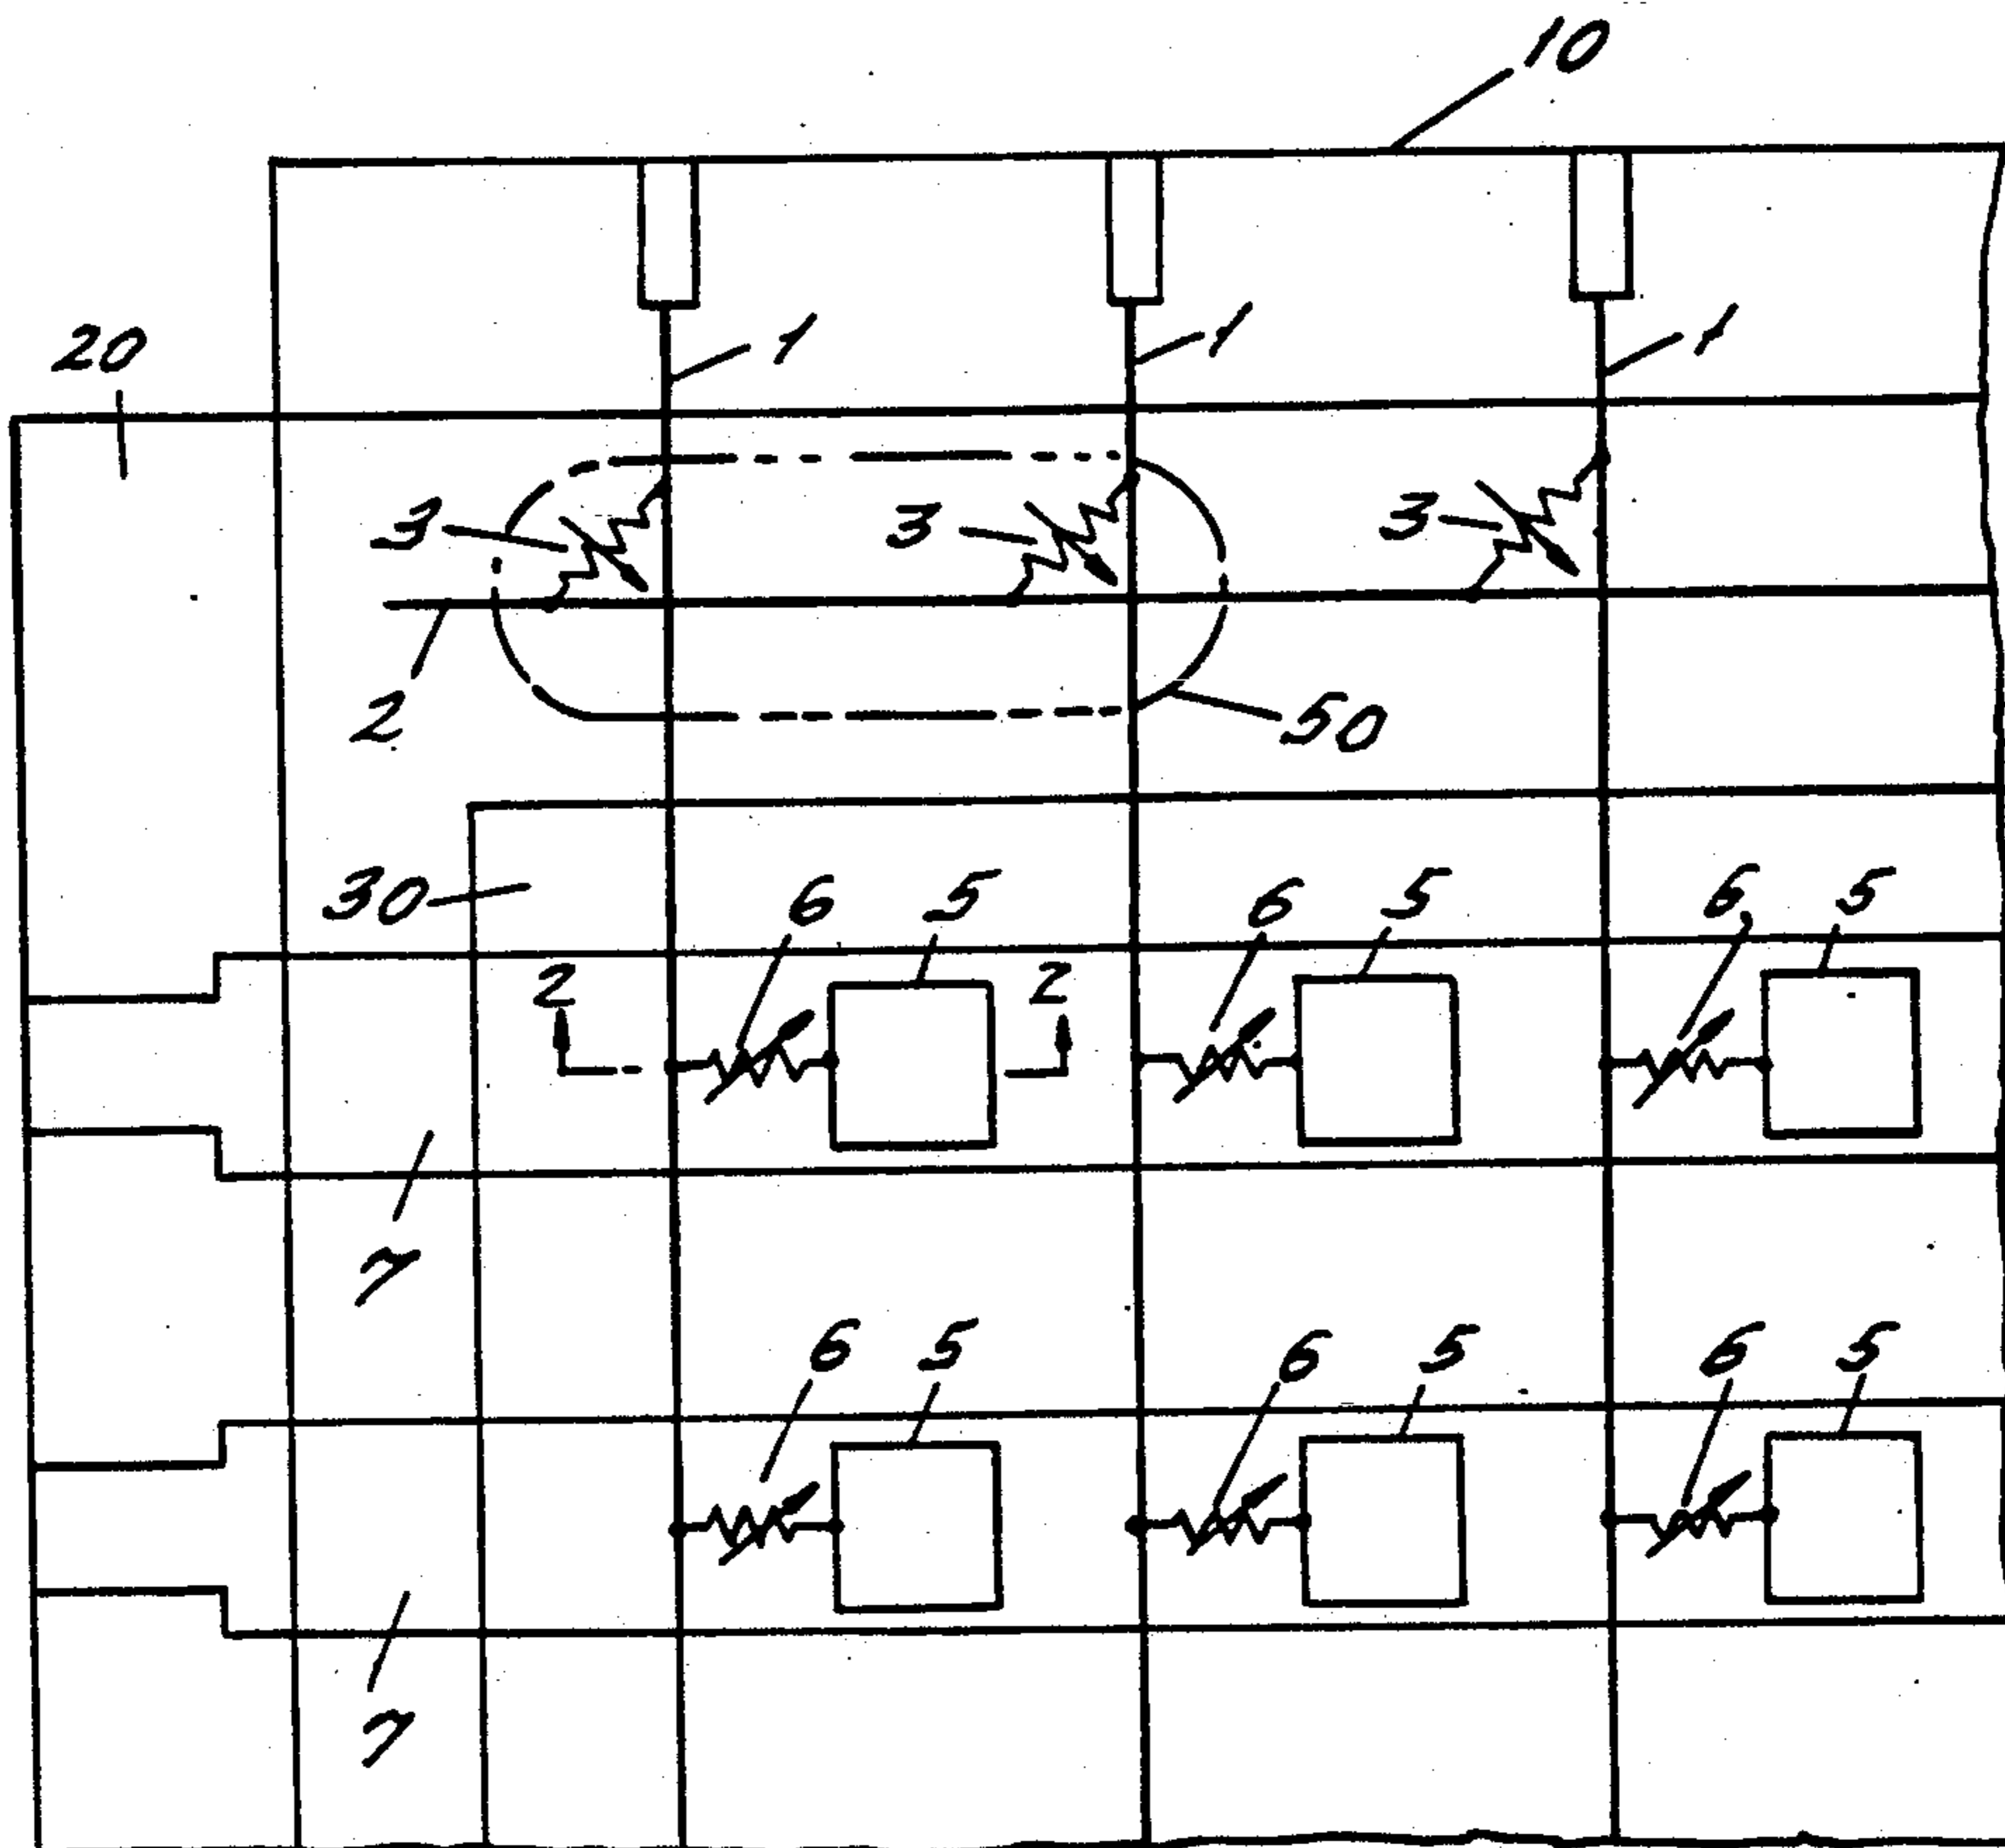 10
20
1 1 1
3 3 3
2
50
30
6 5 6 5 6 5
2 2
7
6 5 6 5 6 5
7